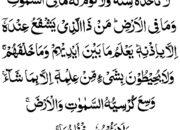 تَأْخُذُهُ سِنَةٌ وَلَا نَوْمٌ لَهُ مَا فِي السَّمٰوٰتِ
وَمَا فِي الْاَرْضِ مَنْ ذَا الَّذِيْ يَشْفَعُ عِنْدَهٗ
اِلَّا بِاِذْنِهٖ يَعْلَمُ مَا بَيْنَ اَيْدِيْهِمْ وَمَا خَلْفَهُمْ
وَلَا يُحِيْطُوْنَ بِشَيْءٍ مِّنْ عِلْمِهٖ اِلَّا بِمَا شَآءَ
وَسِعَ كُرْسِيُّهُ السَّمٰوٰتِ وَالْاَرْضَ